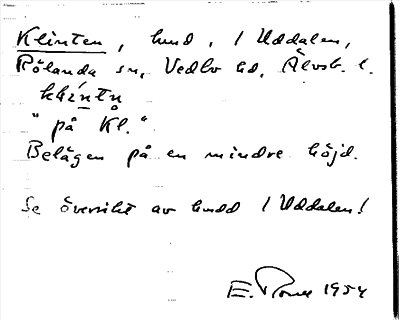 Klinten, hmd, / Uddalen,
Rölanda sn, Vedbo hd, Älvsb. l.
klíntn
"på Kl."
Belägen på en mindre höjd.
Se översikt av hmdd / Uddalen!
E. 1954